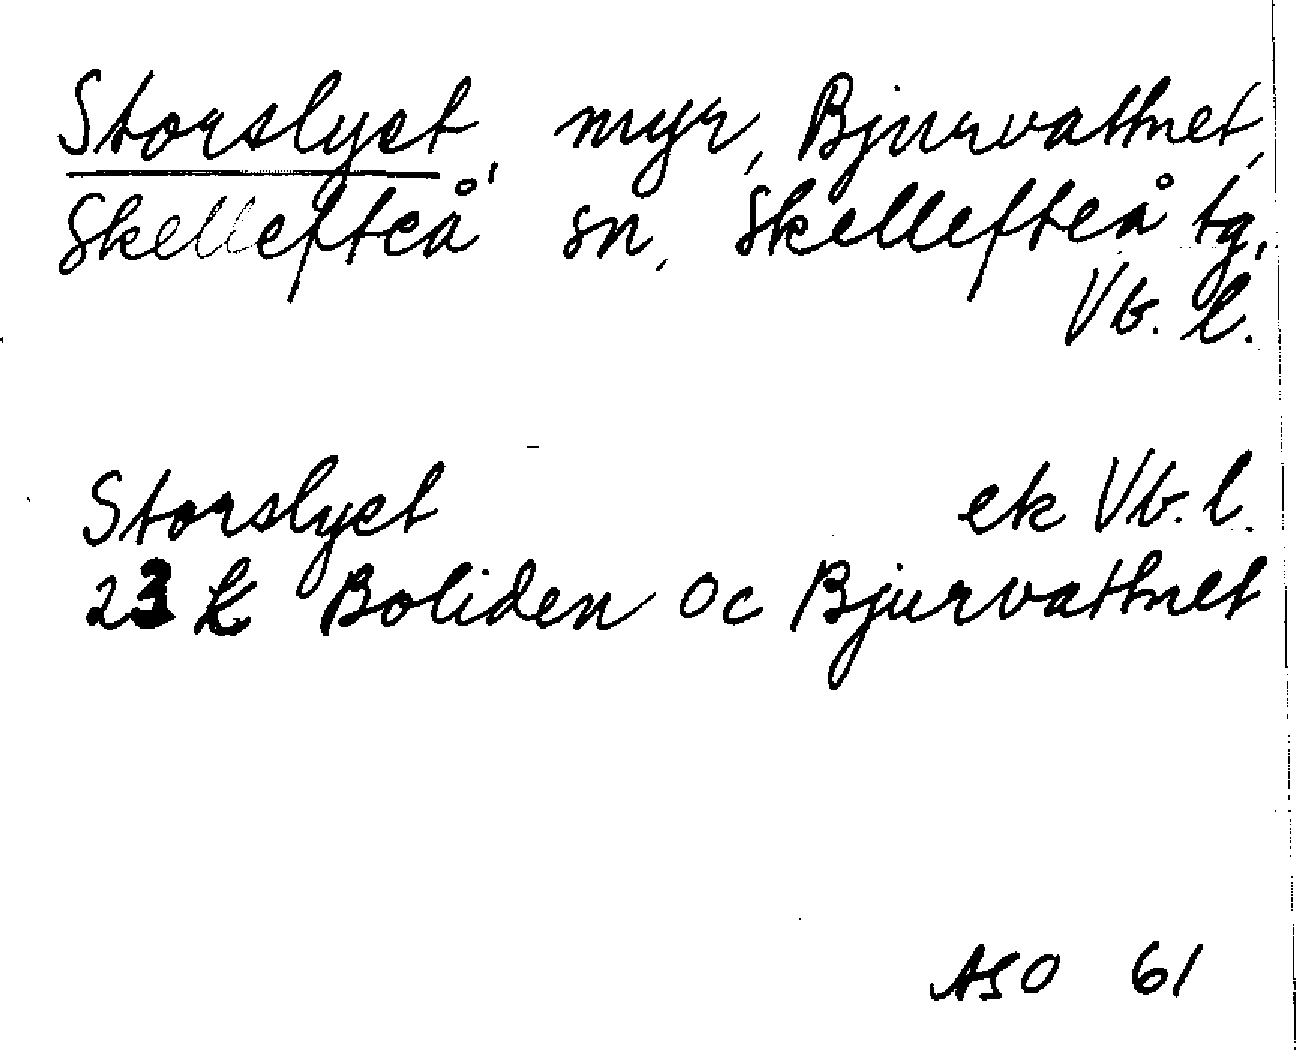 Storslyet, myr, Bjurvattnet,
Skellefteå sn, Skellefteå tg,
Vb. l.
Storslyet ek Vb. l.
23 K Boliden oc Bjurvattnet
ASO 61